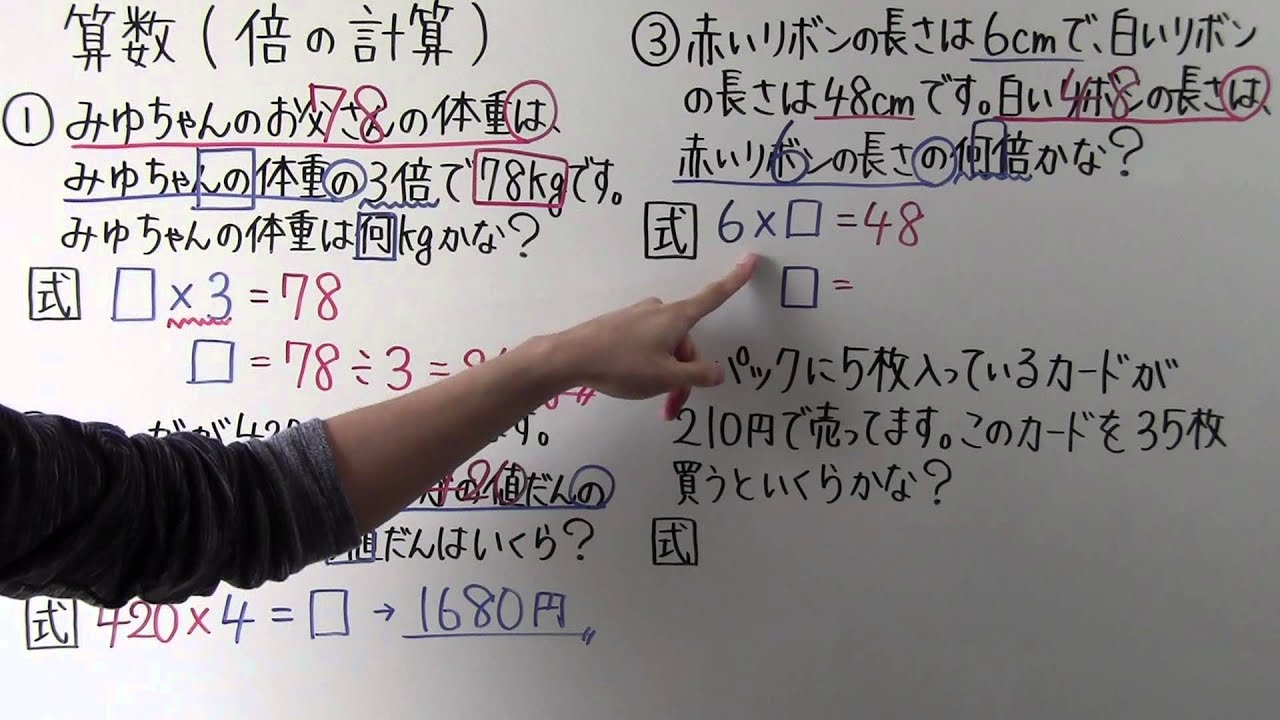 算数(倍の計算)
① みゆちゃんのお父さんの体重は、
78
みゆちゃんの体重の3倍で78kgです。
みゆちゃんの体重は何kgかな?
式 □×3=78
□=78÷3=
420
です。
の値だんの
値だんはいくら?
式 420×4=□→1680円
③ 赤いリボンの長さは6cmで、白いリボン
の長さは48cmです。白いリボンの長さは、
48
赤いリボンの長さの何倍かな?
6
式 6×□=48
□=
パックに5枚入っているカードが
210円で売ってます。このカードを35枚
買うといくらかな?
式